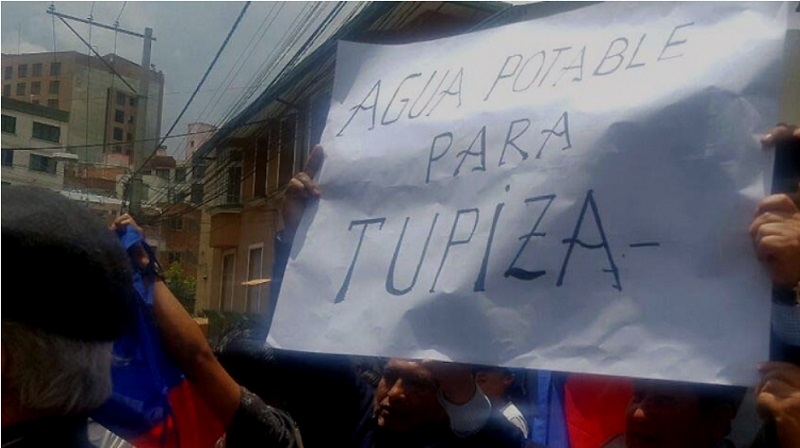 AGUA POTABLE
PARA
TUPiZA-